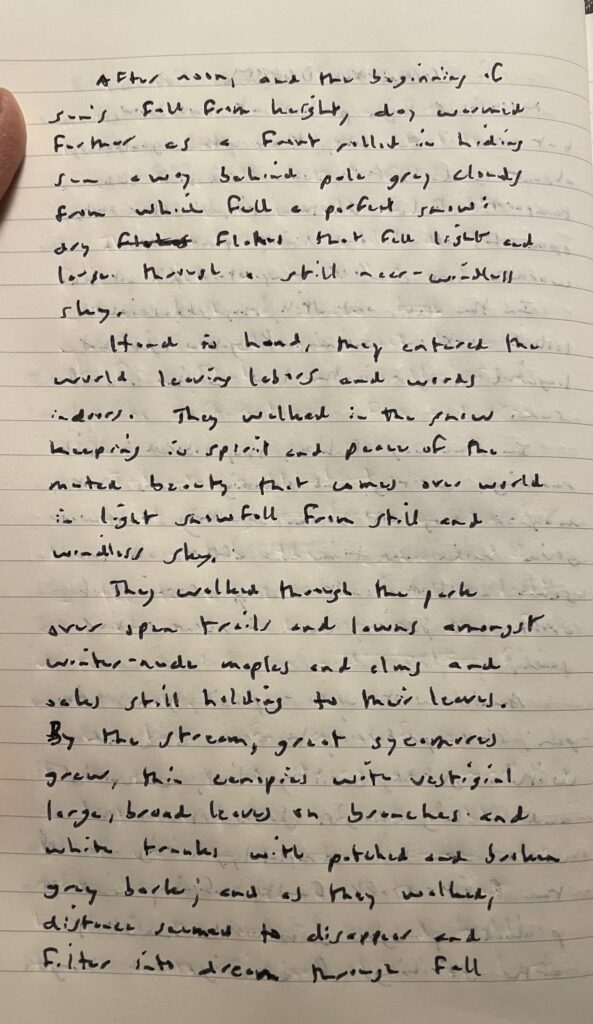 After noon, and the beginning of
sun's fall from height, day warmed
further as a front rolled in hiding
sun away behind pale gray clouds
from which fell a perfect snow:
dry flakes flakes that fell light and
large through a still near-windless
sky.
Hand in hand, they entered the
world leaving labors and words
indoors. They walked in the snow
keeping in spirit and peace of the
muted beauty that comes over world
in light snowfall from still and
windless sky.
They walked through the park
over open trails and lawns amongst
winter-nude maples and elms and
oaks still holding to their leaves.
By the stream, great sycamores
grew, thin canopies with vestigial
large, broad leaves on branches and
white trunks with patched and broken
gray bark; and as they walked,
distance seemed to disappear and
filter into dream through fall